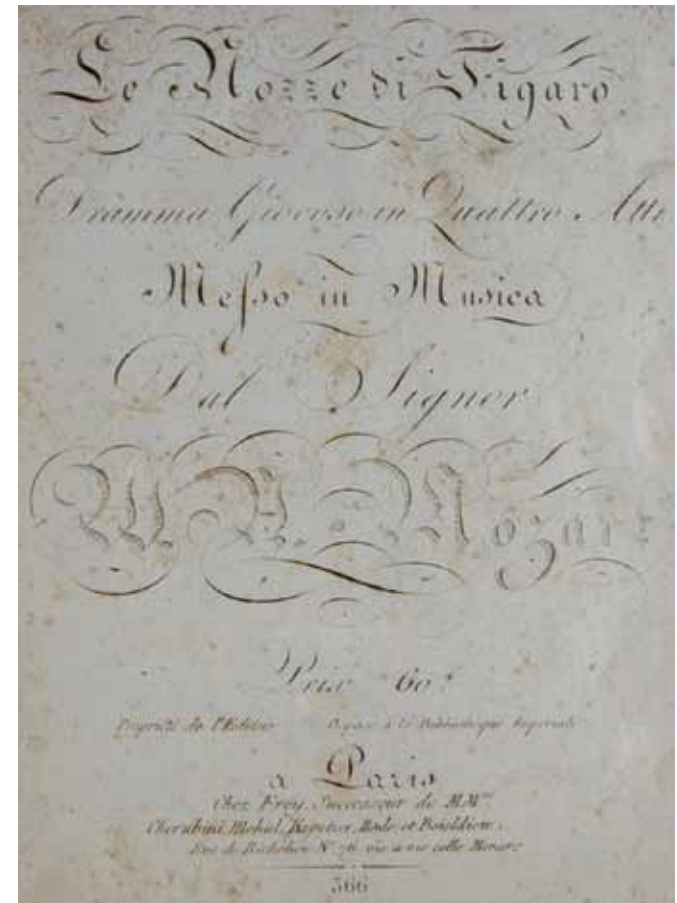 Le Nozze di Figaro
Dramma Giocoso in Quattro Atti
Messo in Musica
Dal Signor
W. A. Mozart
Prix 60.f
Propriété de l'Editeur Dépose à la Bibliothèque Impériale
a Paris
Chez Frey, Successeur de M.Mrs
Cherubini, Mehul, Kreutzer, Rode, et Boieldieu.
Rue de Richelieu N.° 76 vis a vis celle Menars
366